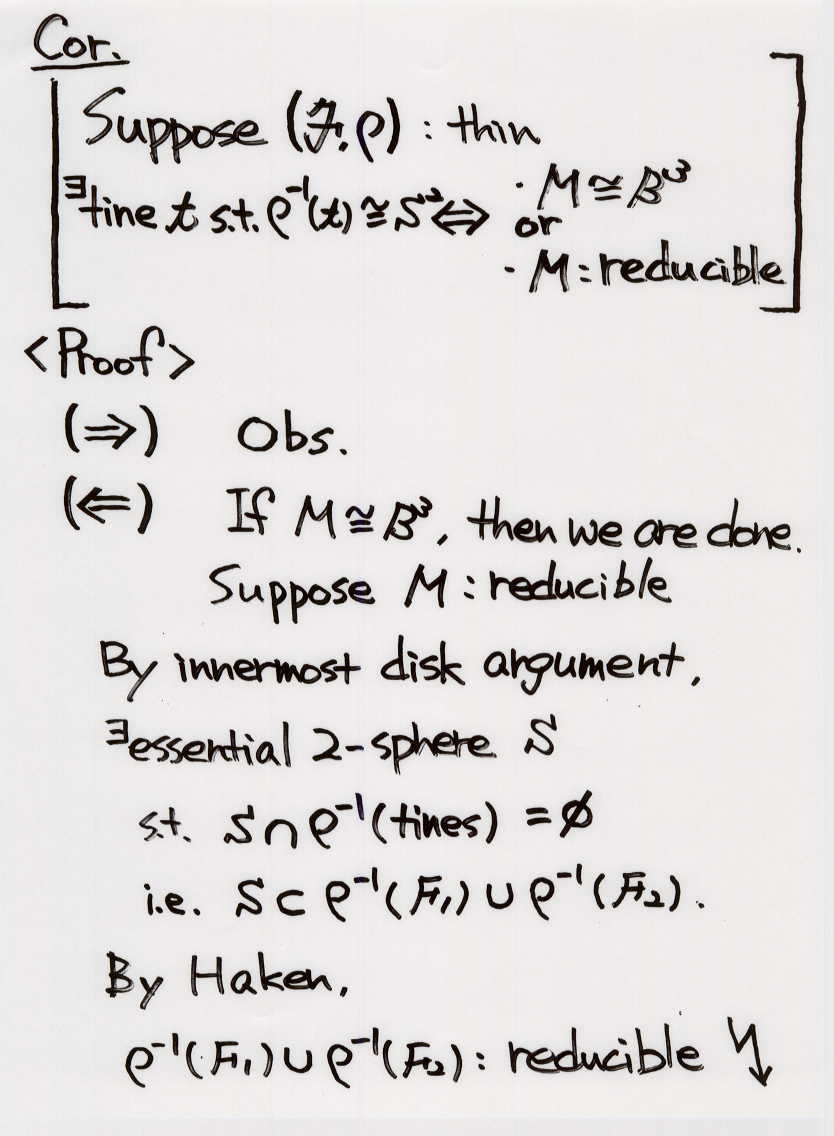 Cor.
Suppose (ℱ, ρ) : thin
∃tine t s.t. ρ⁻¹(t) ≅ S² ⇔ · M ≅ B³
or
· M : reducible
<Proof>
(⇒) Obs.
(⇐) If M ≅ B³, then we are done.
Suppose M : reducible
By innermost disk argument,
∃essential 2-sphere S
s.t. S ∩ ρ⁻¹(tines) = ∅
i.e. S ⊂ ρ⁻¹(F₁) ∪ ρ⁻¹(F₂).
By Haken,
ρ⁻¹(F₁) ∪ ρ⁻¹(F₂) : reducible ↯